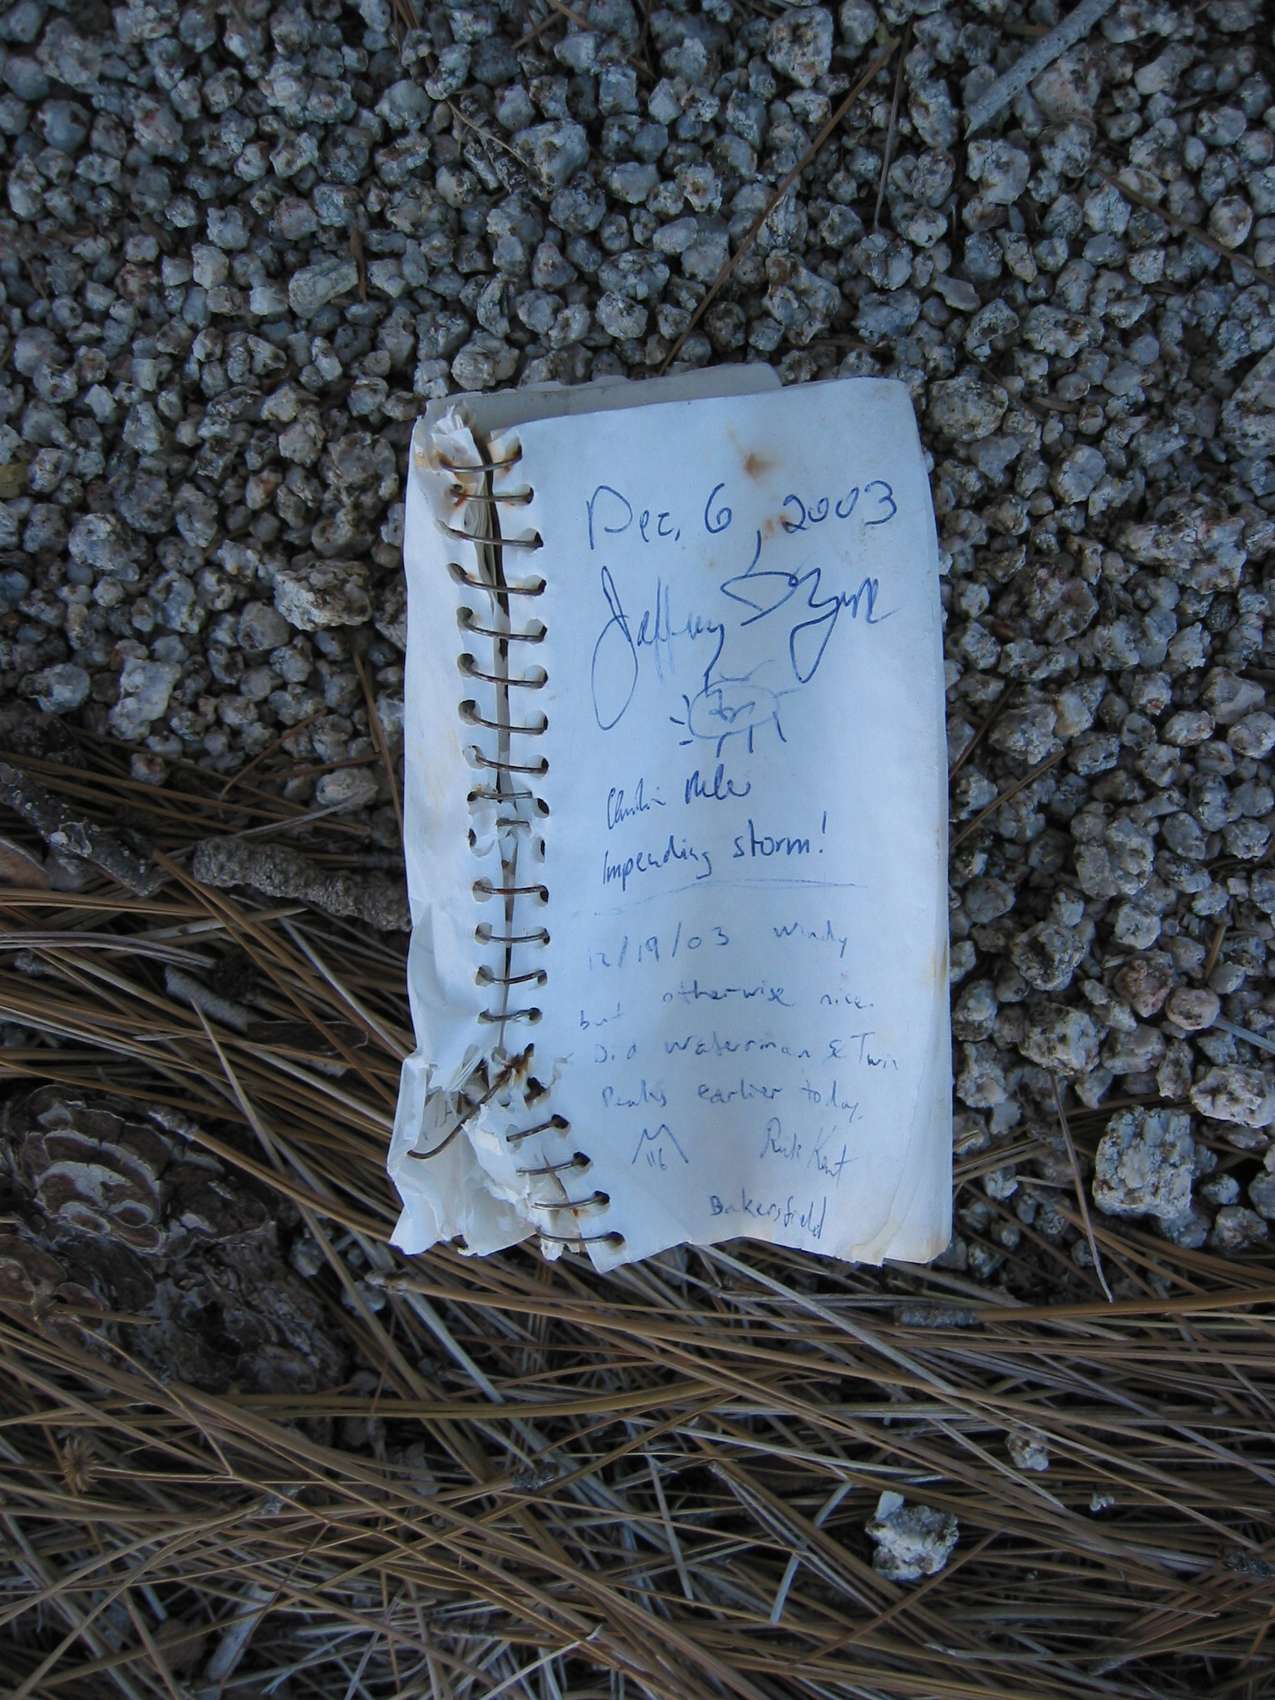 Dec. 6, 2003
Jeffrey
Impending storm!
12/19/03 Windy
but otherwise nice.
Did Waterman & Twin
Peaks earlier today.
Rick Kent
Bakersfield